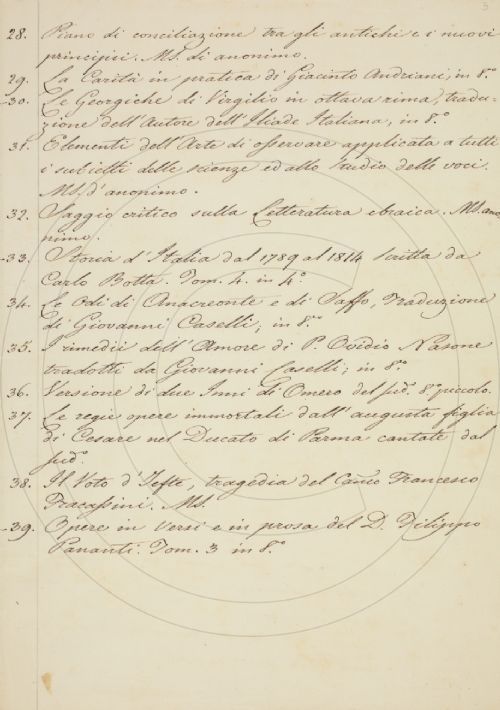 28. Piano di conciliazione tra gli antichi e i nuovi
principii. MS. di anonimo.
29. La Carità in pratica di Giacinto Andriani; in 8.º
-30. Le Georgiche di Virgilio in ottava rima, tradu-
zione dell'Autore dell'Iliade Italiana; in 8.º
31. Elementi dell'Arte di osservare applicata a tutti
i subietti delle scienze ed allo studio delle voci.
MS. d'anonimo.
32. Saggio critico sulla Letteratura ebraica. MS. ano
nimo.
-33. Storia d'Italia dal 1789 al 1814 scritta da
Carlo Botta. Tom. 4. in 4.º
34. Le Odi di Anacreonte e di Saffo, Traduzione
di Giovanni Caselli; in 8.º
35. I rimedii dell'Amore di P. Ovidio Nasone
tradotti da Giovanni Caselli; in 8.º
36. Versione di due Inni di Omero del sud.º 8.º piccolo.
37. Le regie opere immortali dall'augusta figlia
di Cesare nel Ducato di Parma cantate dal
sud.º
38. Il Voto d'Jefte, tragedia del Can.co Francesco
Fracassini. MS.
-39. Opere in Versi e in prosa del D. Filippo
Pananti. Tom. 3 in 8.º